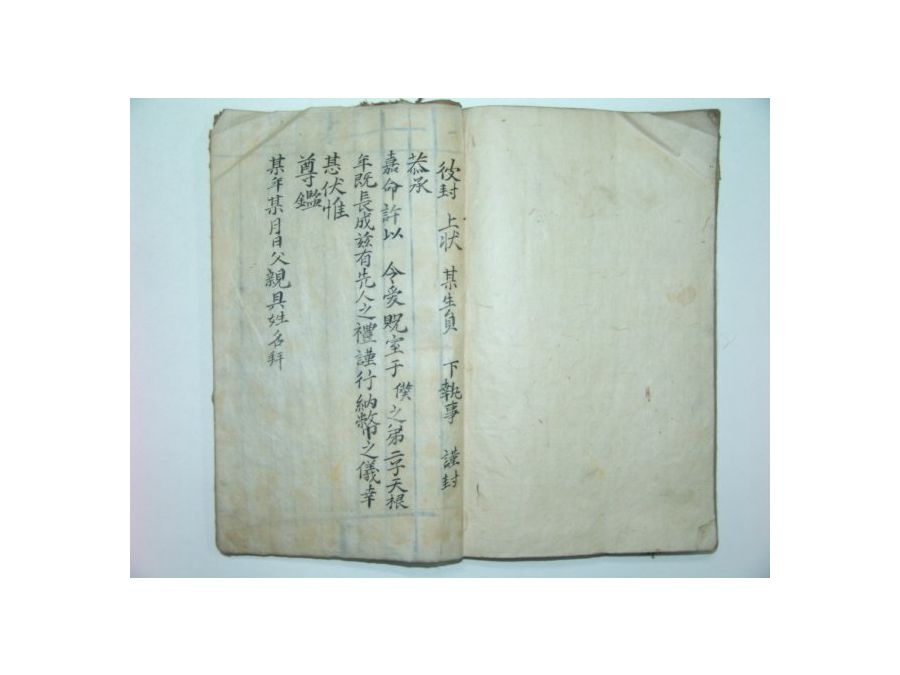 後封 上状 某生員 下執事 謹封
恭承
嘉命許以 令愛貺室于僕之第二子天根
年旣長成玆有先人之禮謹行納幣之儀幸
甚伏惟
尊鑑
某年某月日父親具姓名拜